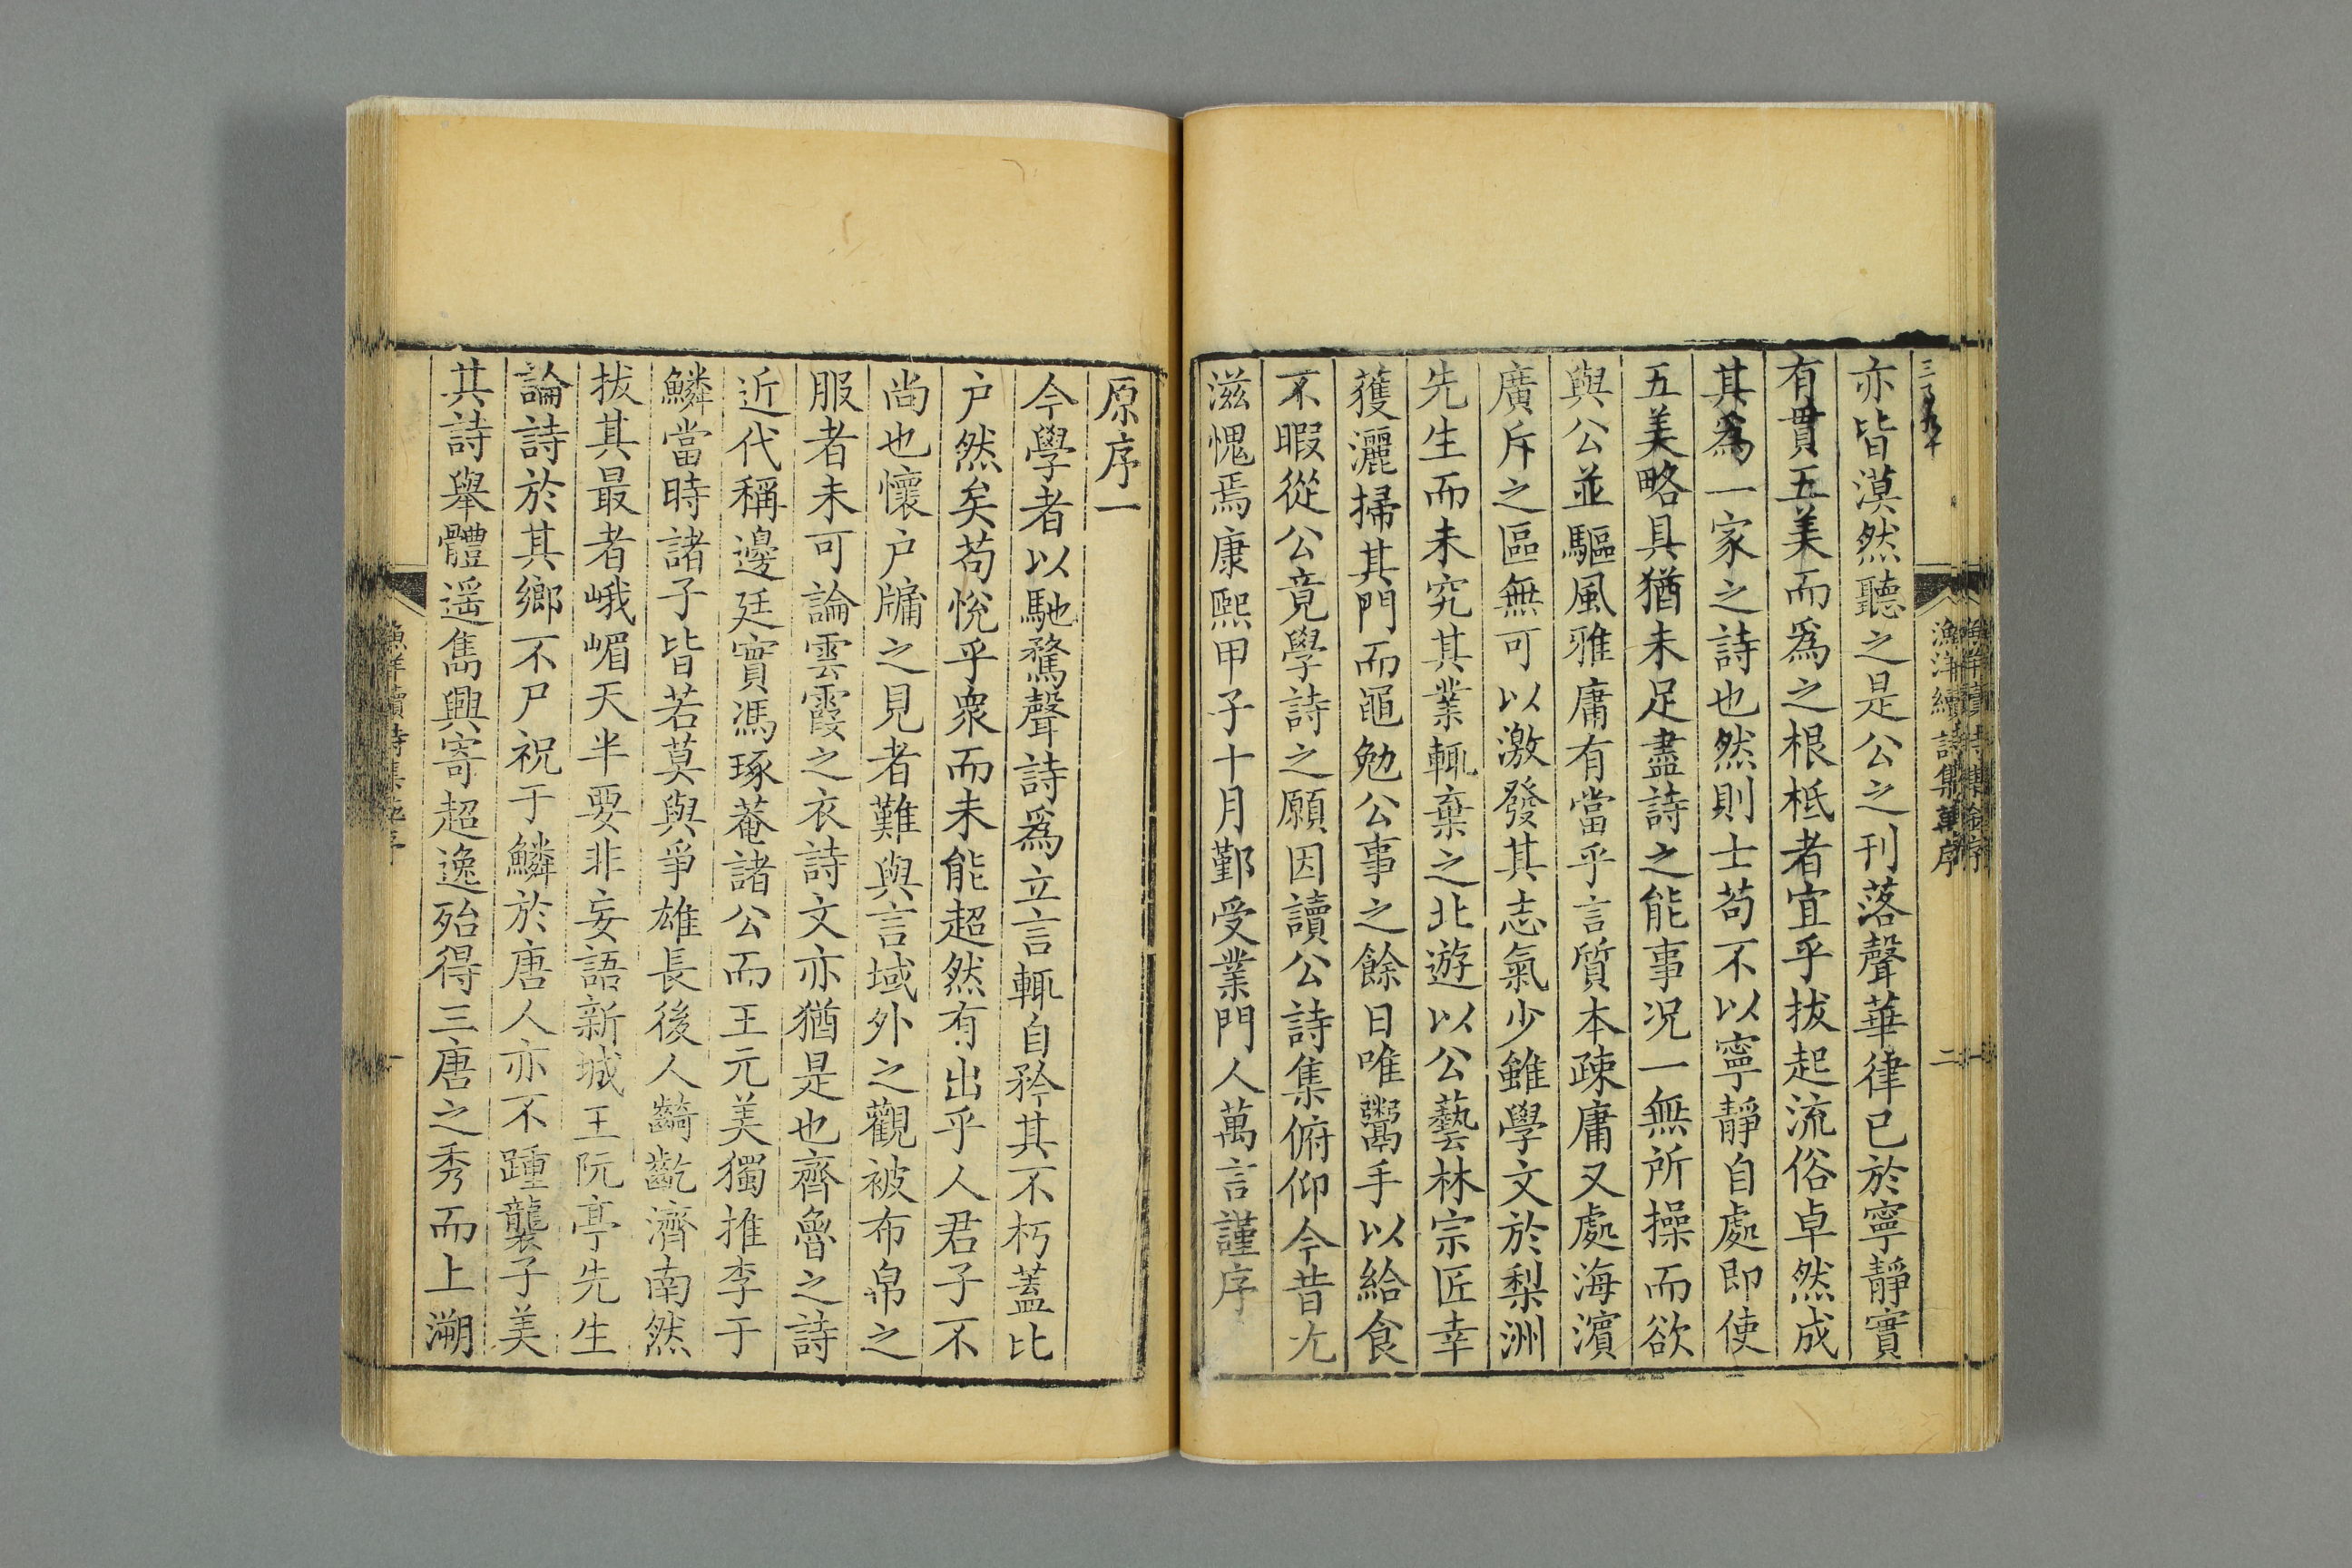 亦皆漠然聽之是公之刊落聲華律已於寧靜實
有貫五美而爲之根柢者宜乎拔起流俗卓然成
其爲一家之詩也然則士苟不以寧靜自處即使
五美略具猶未足盡詩之能事况一無所操而欲
與公並驅風雅庸有當乎言質本疎庸又處海濵
廣斥之區無可以激發其志氣少雖學文於梨洲
先生而未究其業輒棄之北遊以公藝林宗匠幸
獲灑掃其門而黽勉公事之餘日唯鬻手以給食
不暇從公竟學詩之願因讀公詩集俯仰今昔尤
滋愧焉康熙甲子十月鄞受業門人萬言謹序
漁洋續詩集萬序
二
原序一
今學者以馳騖聲詩爲立言輒自矜其不朽蓋比
户然矣苟悅乎衆而未能超然有出乎人君子不
尚也懷户牖之見者難與言域外之觀被布帛之
服者未可論雲霞之衣詩文亦猶是也齊魯之詩
近代稱邊廷實馮琢菴諸公而王元美獨推李于
鱗當時諸子皆若莫與爭雄長後人齮齕濟南然
拔其最者峨嵋天半要非妄語新城王阮亭先生
論詩於其鄉不尸祝于鱗於唐人亦不踵襲子美
其詩舉體遥雋興寄超逸殆得三唐之秀而上溯